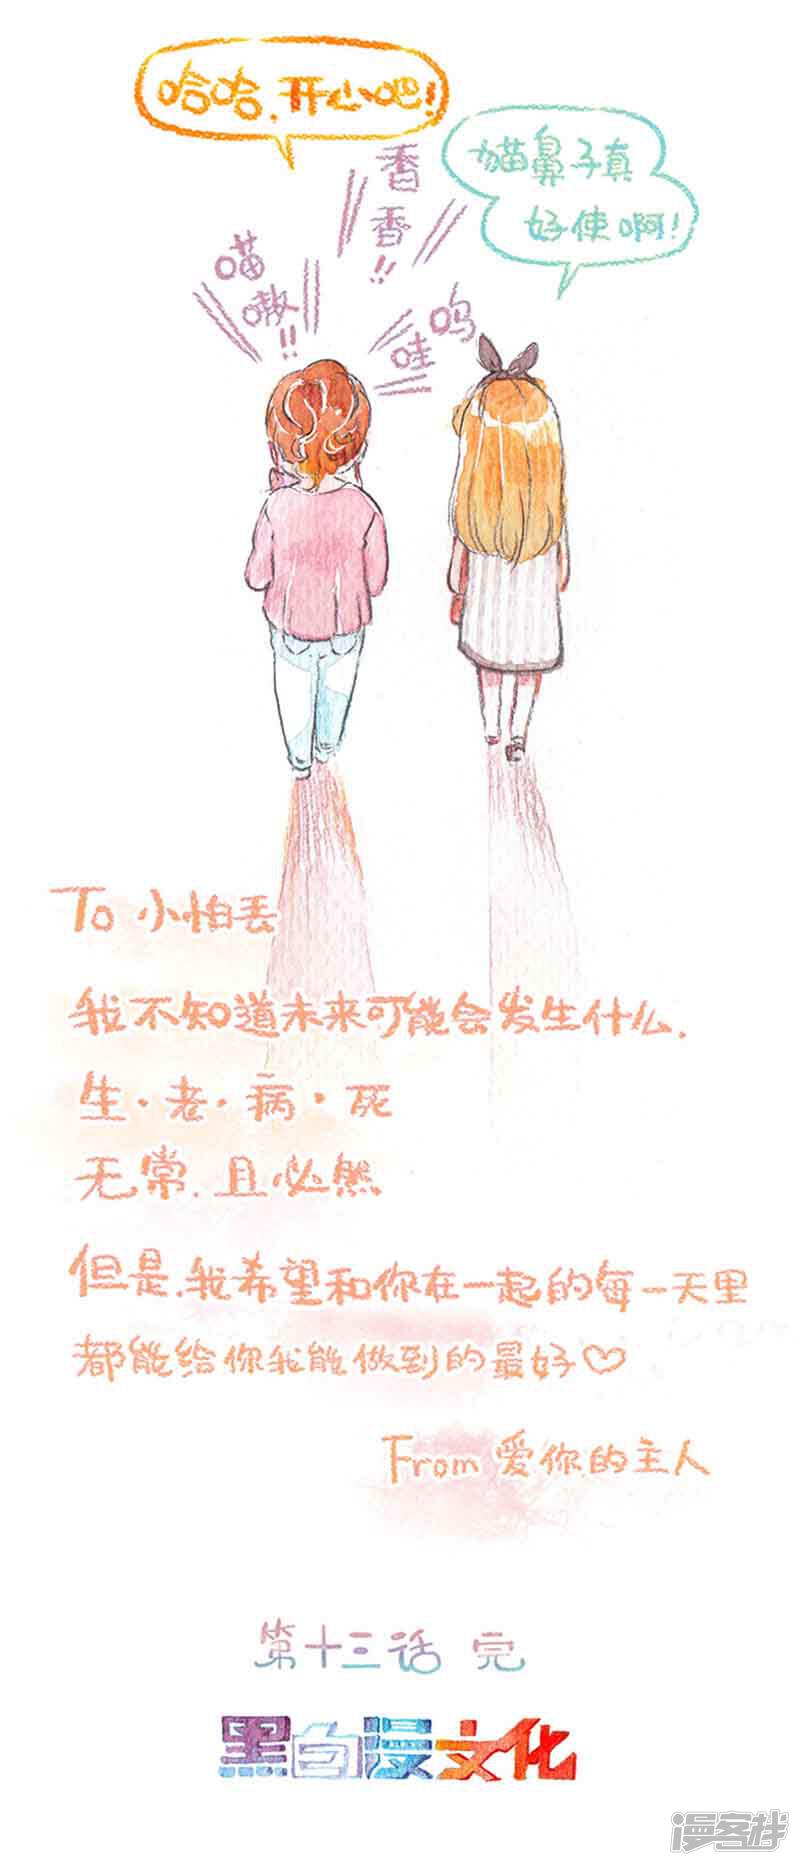 哈哈,开心吧!
猫鼻子真
好使啊!
香香!!
喵嗷!!
呜哇
To 小怕丢
我不知道未来可能会发生什么.
生·老·病·死
无常.且必然
但是.我希望和你在一起的每一天里
都能给你我能做到的最好♡
From 爱你的主人
第十三话 完
黑白漫文化
漫客栈